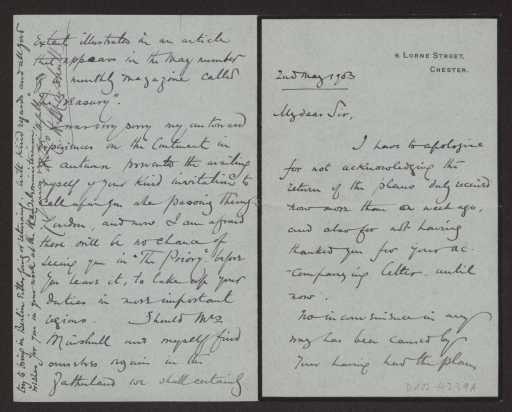 6 LORNE STREET,
CHESTER.
2nd May 1903
My dear Sir,
I have to apologise
for not acknowledging the
return of the plans duly received
now more than a week ago,
and also for not having
thanked you for your ac-
companying letter until
now.
No inconvenience in any
way has been caused by
your having had the plans
D/02-4239A
extent illustrates in an article
that appears in the May number
of a monthly magazine called
"The Treasury".
I am very sorry my untoward
experiences on the Continent in
the autumn prevents the writing
myself of your kind invitation to
call upon you when passing through
London, and now I am afraid
there will be no chance of
seeing you in "The Priory" before
you leave it, to take up your
duties in more important
regions. Should Mrs
Minshull and myself find
ourselves again in the
Fatherland we shall certainly
try to bring in Berlin either going or returning. With kind regards and all good
wishes for you in your work at the